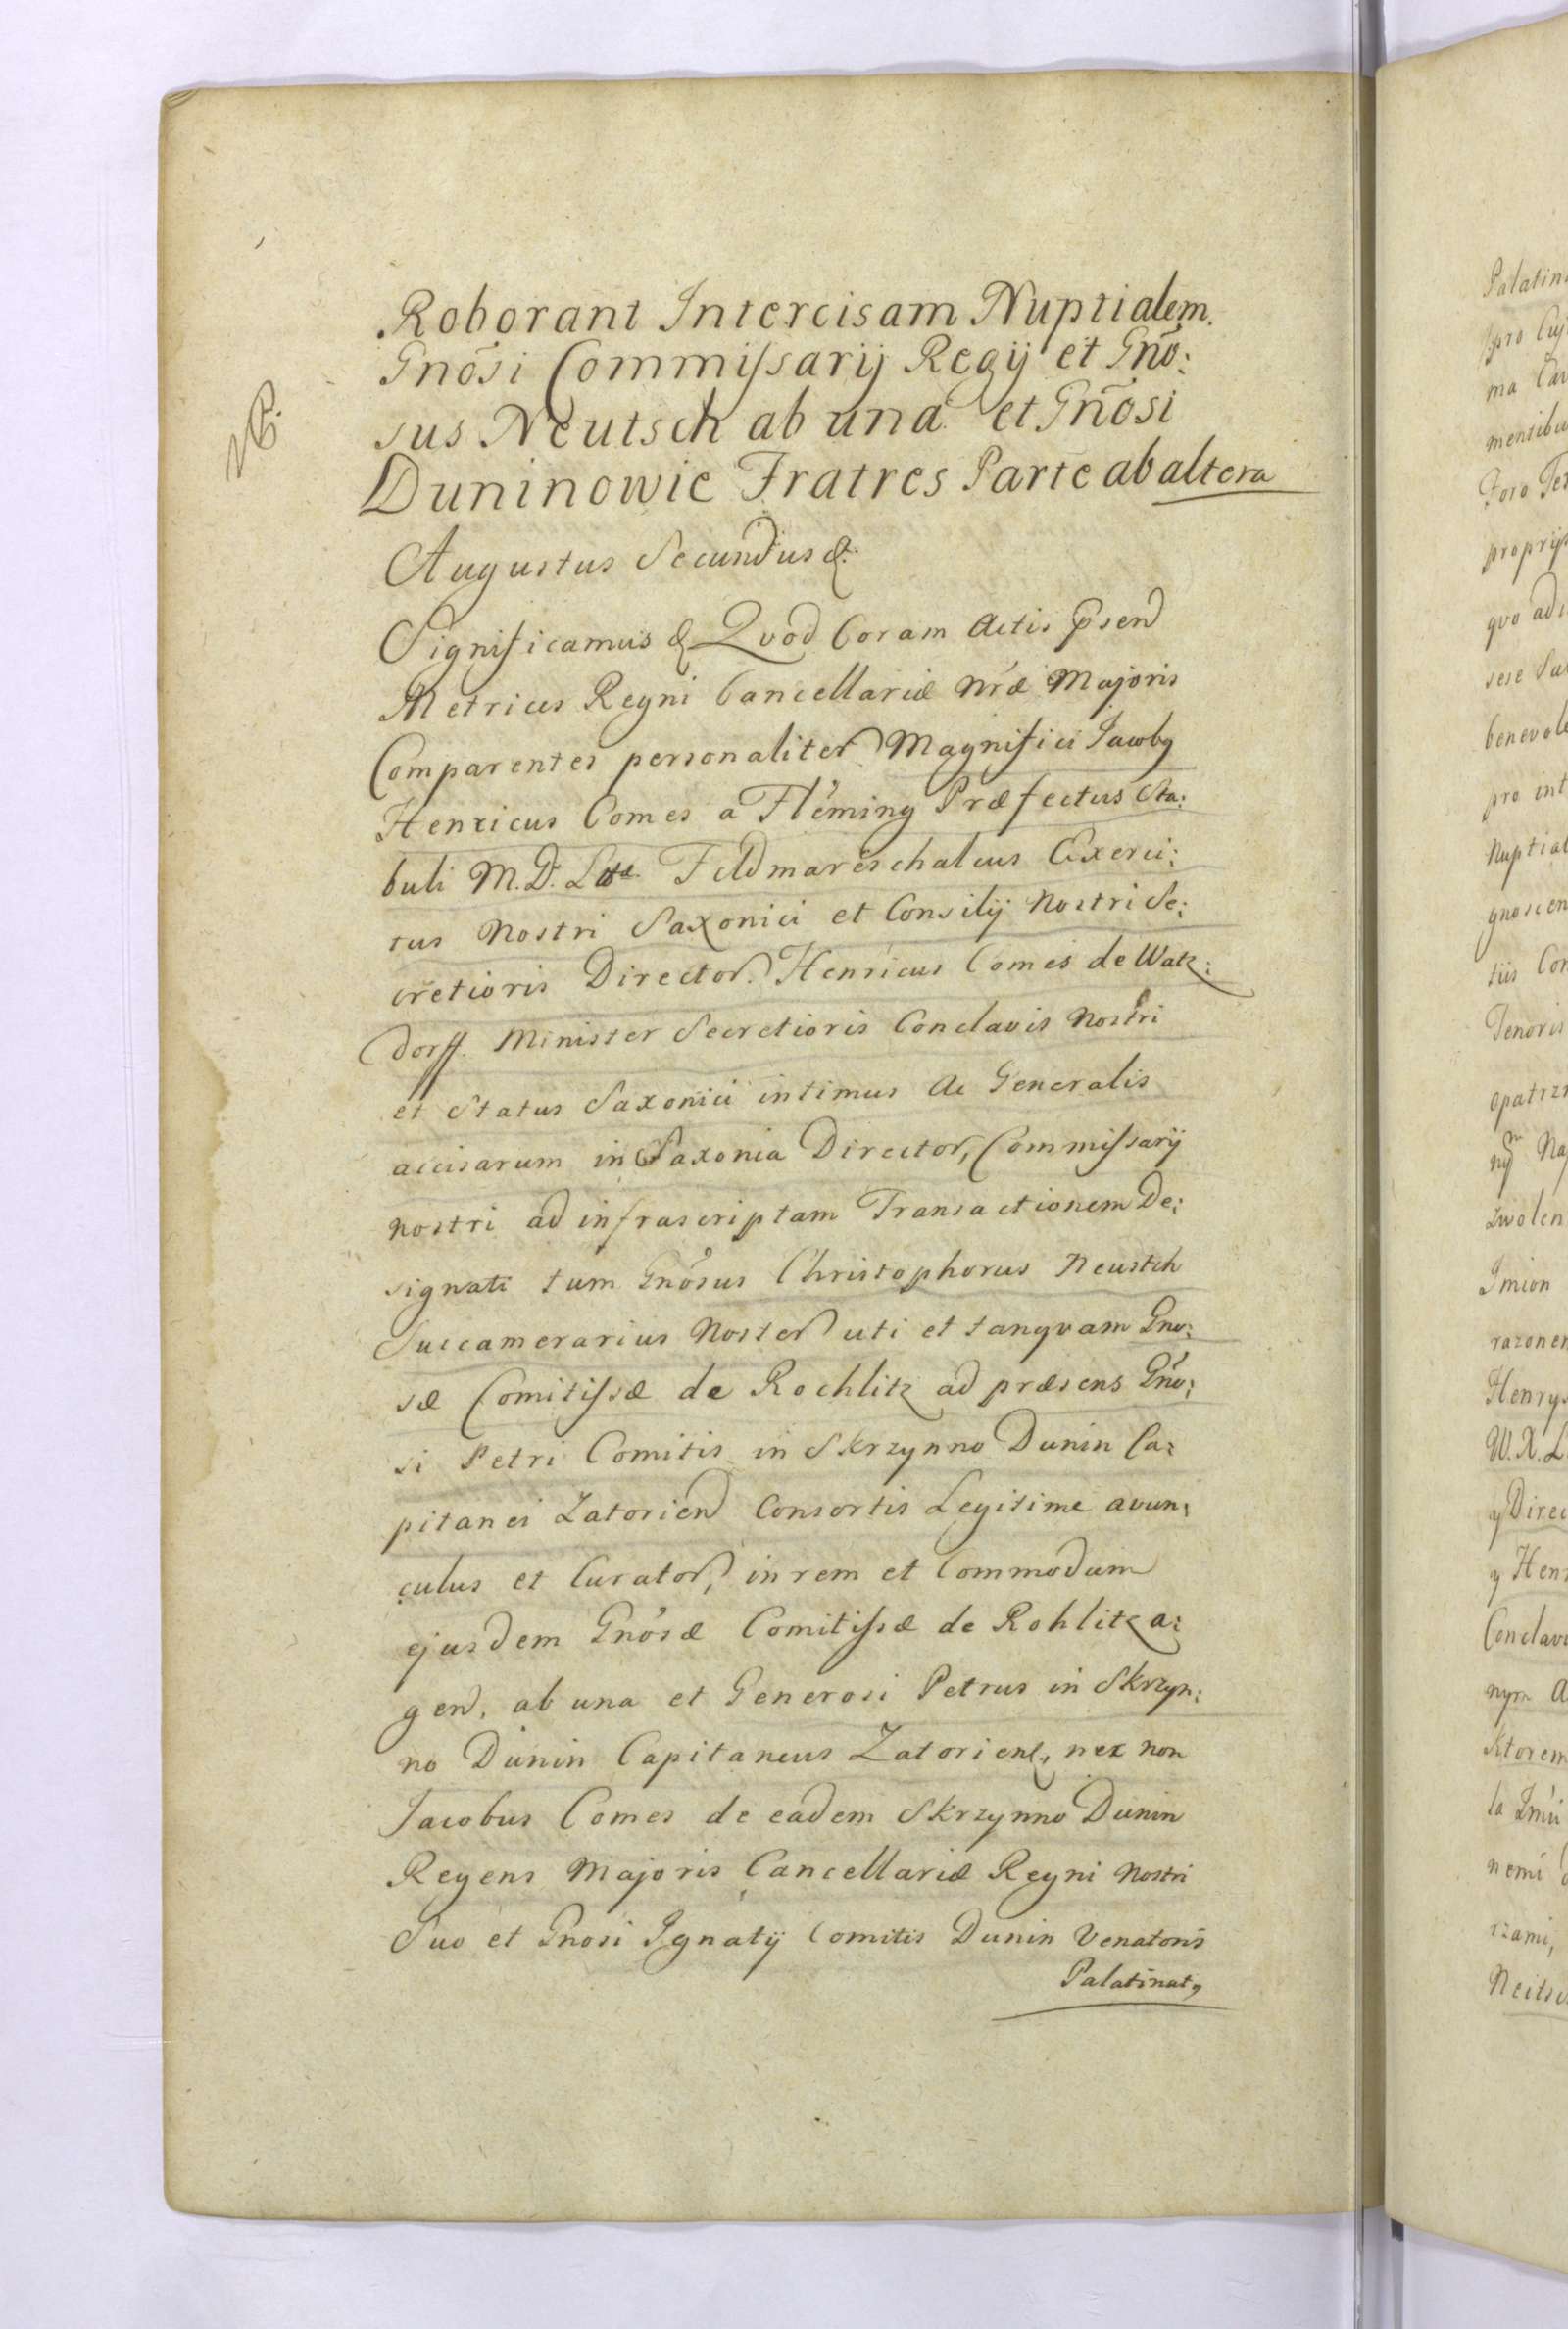 NB.
Roborant Intercisam Nuptialem.
Gnõsi Commissarij Regij et Gnõ:
sus Neutsch ab una et Gnõsi
Duninowie Fratres Parte ab altera
Augustus Secundus &.
Significamus & Quod Coram Actis Psen
Metrices Regni Cancellariæ nræ Majoris
Comparentes personaliter Magnifici Jacoby
Henricus Comes a Fleming Præfectus Sta:
buli M.D. Litt. Feldmareschalcus Exerci:
tus Nostri Saxonici et Consilij Nostri Se:
cretioris Director. Henricus Comes de Watz:
dorff. Minister Secretioris Conclavis Nostri
et Status Saxonici intimus ac Generalis
accisarum in Saxonia Director, Commissarij
nostri ad infrascriptam Transactionem De:
signati tum Gnosus Christophorus Neustch
Succamerarius Noster uti et tanqvam Gno:
sæ Comitissæ de Rochlitz ad præsens Gno:
si Petri Comitis in Skrzynno Dunin Ca:
pitanei Zatorien Consortis Legitime avun:
culus et Curator, in rem et Commodum
ejusdem Gnosæ Comitissæ de Rohlitz a:
gen, ab una et Generosi Petrus in Skrzyn:
no Dunin Capitaneus Zatorien, nec non
Jacobus Comes de eadem Skrzynno Dunin
Regens Majoris Cancellariæ Regni Nostri
Suo et Gnosi Ignatij Comitis Dunin Venatoris
Palatinaty
Palatin
pro Cuj
ma
mensibu
Foro
proprys
quo adi
sese
benevole
pro int
Nuptial
gnoscen
tiis Con
Tenoris
opatrzn
ny Na
zwolen
Imion
razonem
Henrys
W.X.L.
y Direc
y Henr
Conclavi
nym A
Ktorem
la Imii
nemi
rzami,
Neitsc